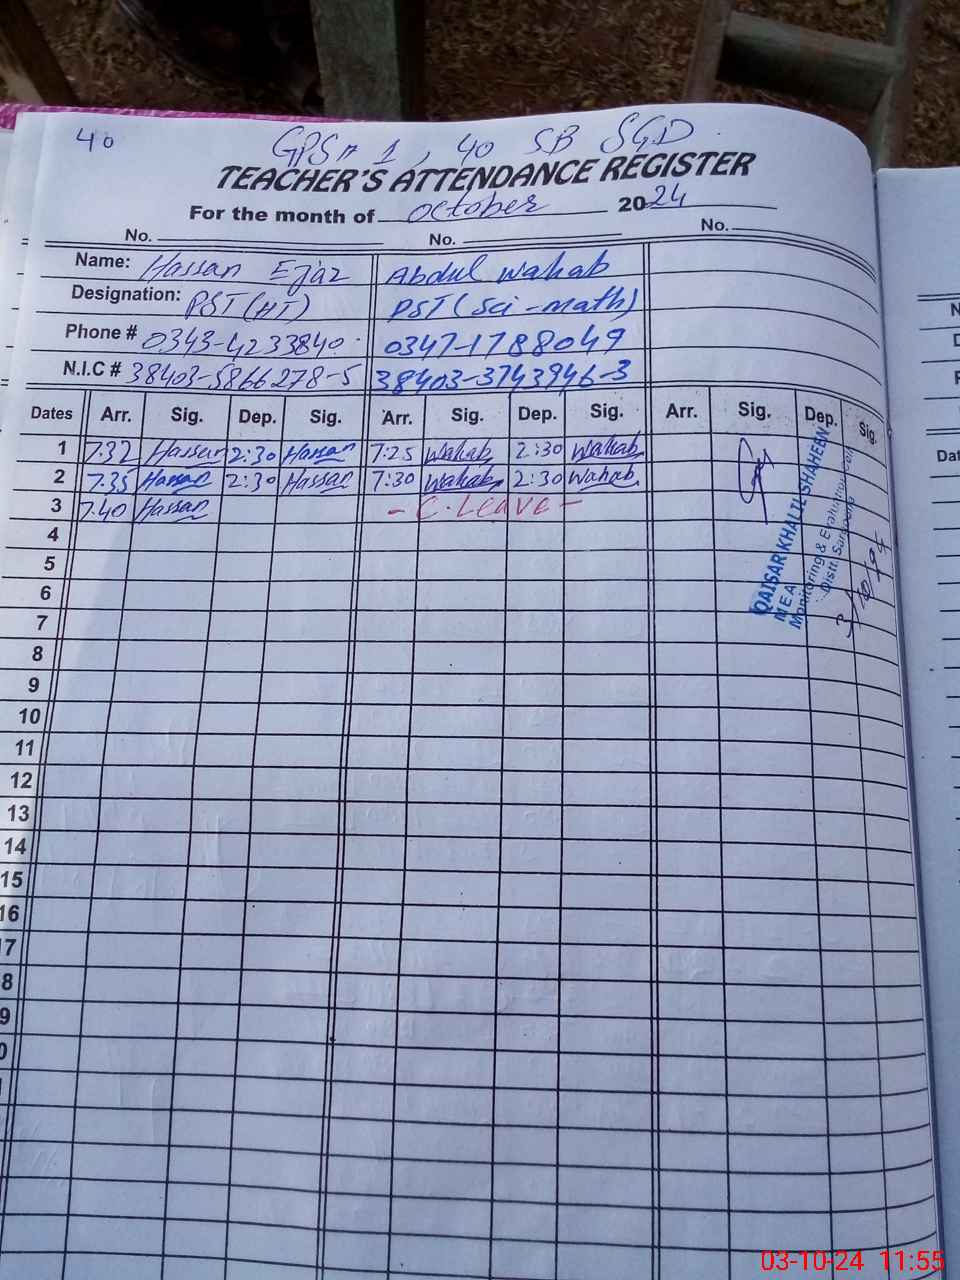 40
GPS # 1, 40 SB SGD
TEACHER'S ATTENDANCE REGISTER
For the month of October 2024
No. No. No.
Name: Hassan Ejaz Abdul Wahab
Designation: PST (HT) PST (Sci-math)
Phone # 0343-4233840 0347-1788049
N.I.C # 38403-5866278-5 38403-3743946-3
Dates Arr. Sig. Dep. Sig. Arr. Sig. Dep. Sig. Arr. Sig. Dep. Sig.
1 7.32 Hassan 2:30 Hassan 7:25 Wahab 2:30 Wahab
2 7.35 Hassan 2:30 Hassan 7:30 Wahab 2:30 Wahab
3 7.40 Hassan - C. Leave -
4
5
6
7
8
9
10
11
12
13
14
15
16
7
8
9
0
QAISAR KHALIL SHAHEEN
MEA
Monitoring & Evaluation Cell
Distt. Sargodha
Dat
03-10-24 11:55